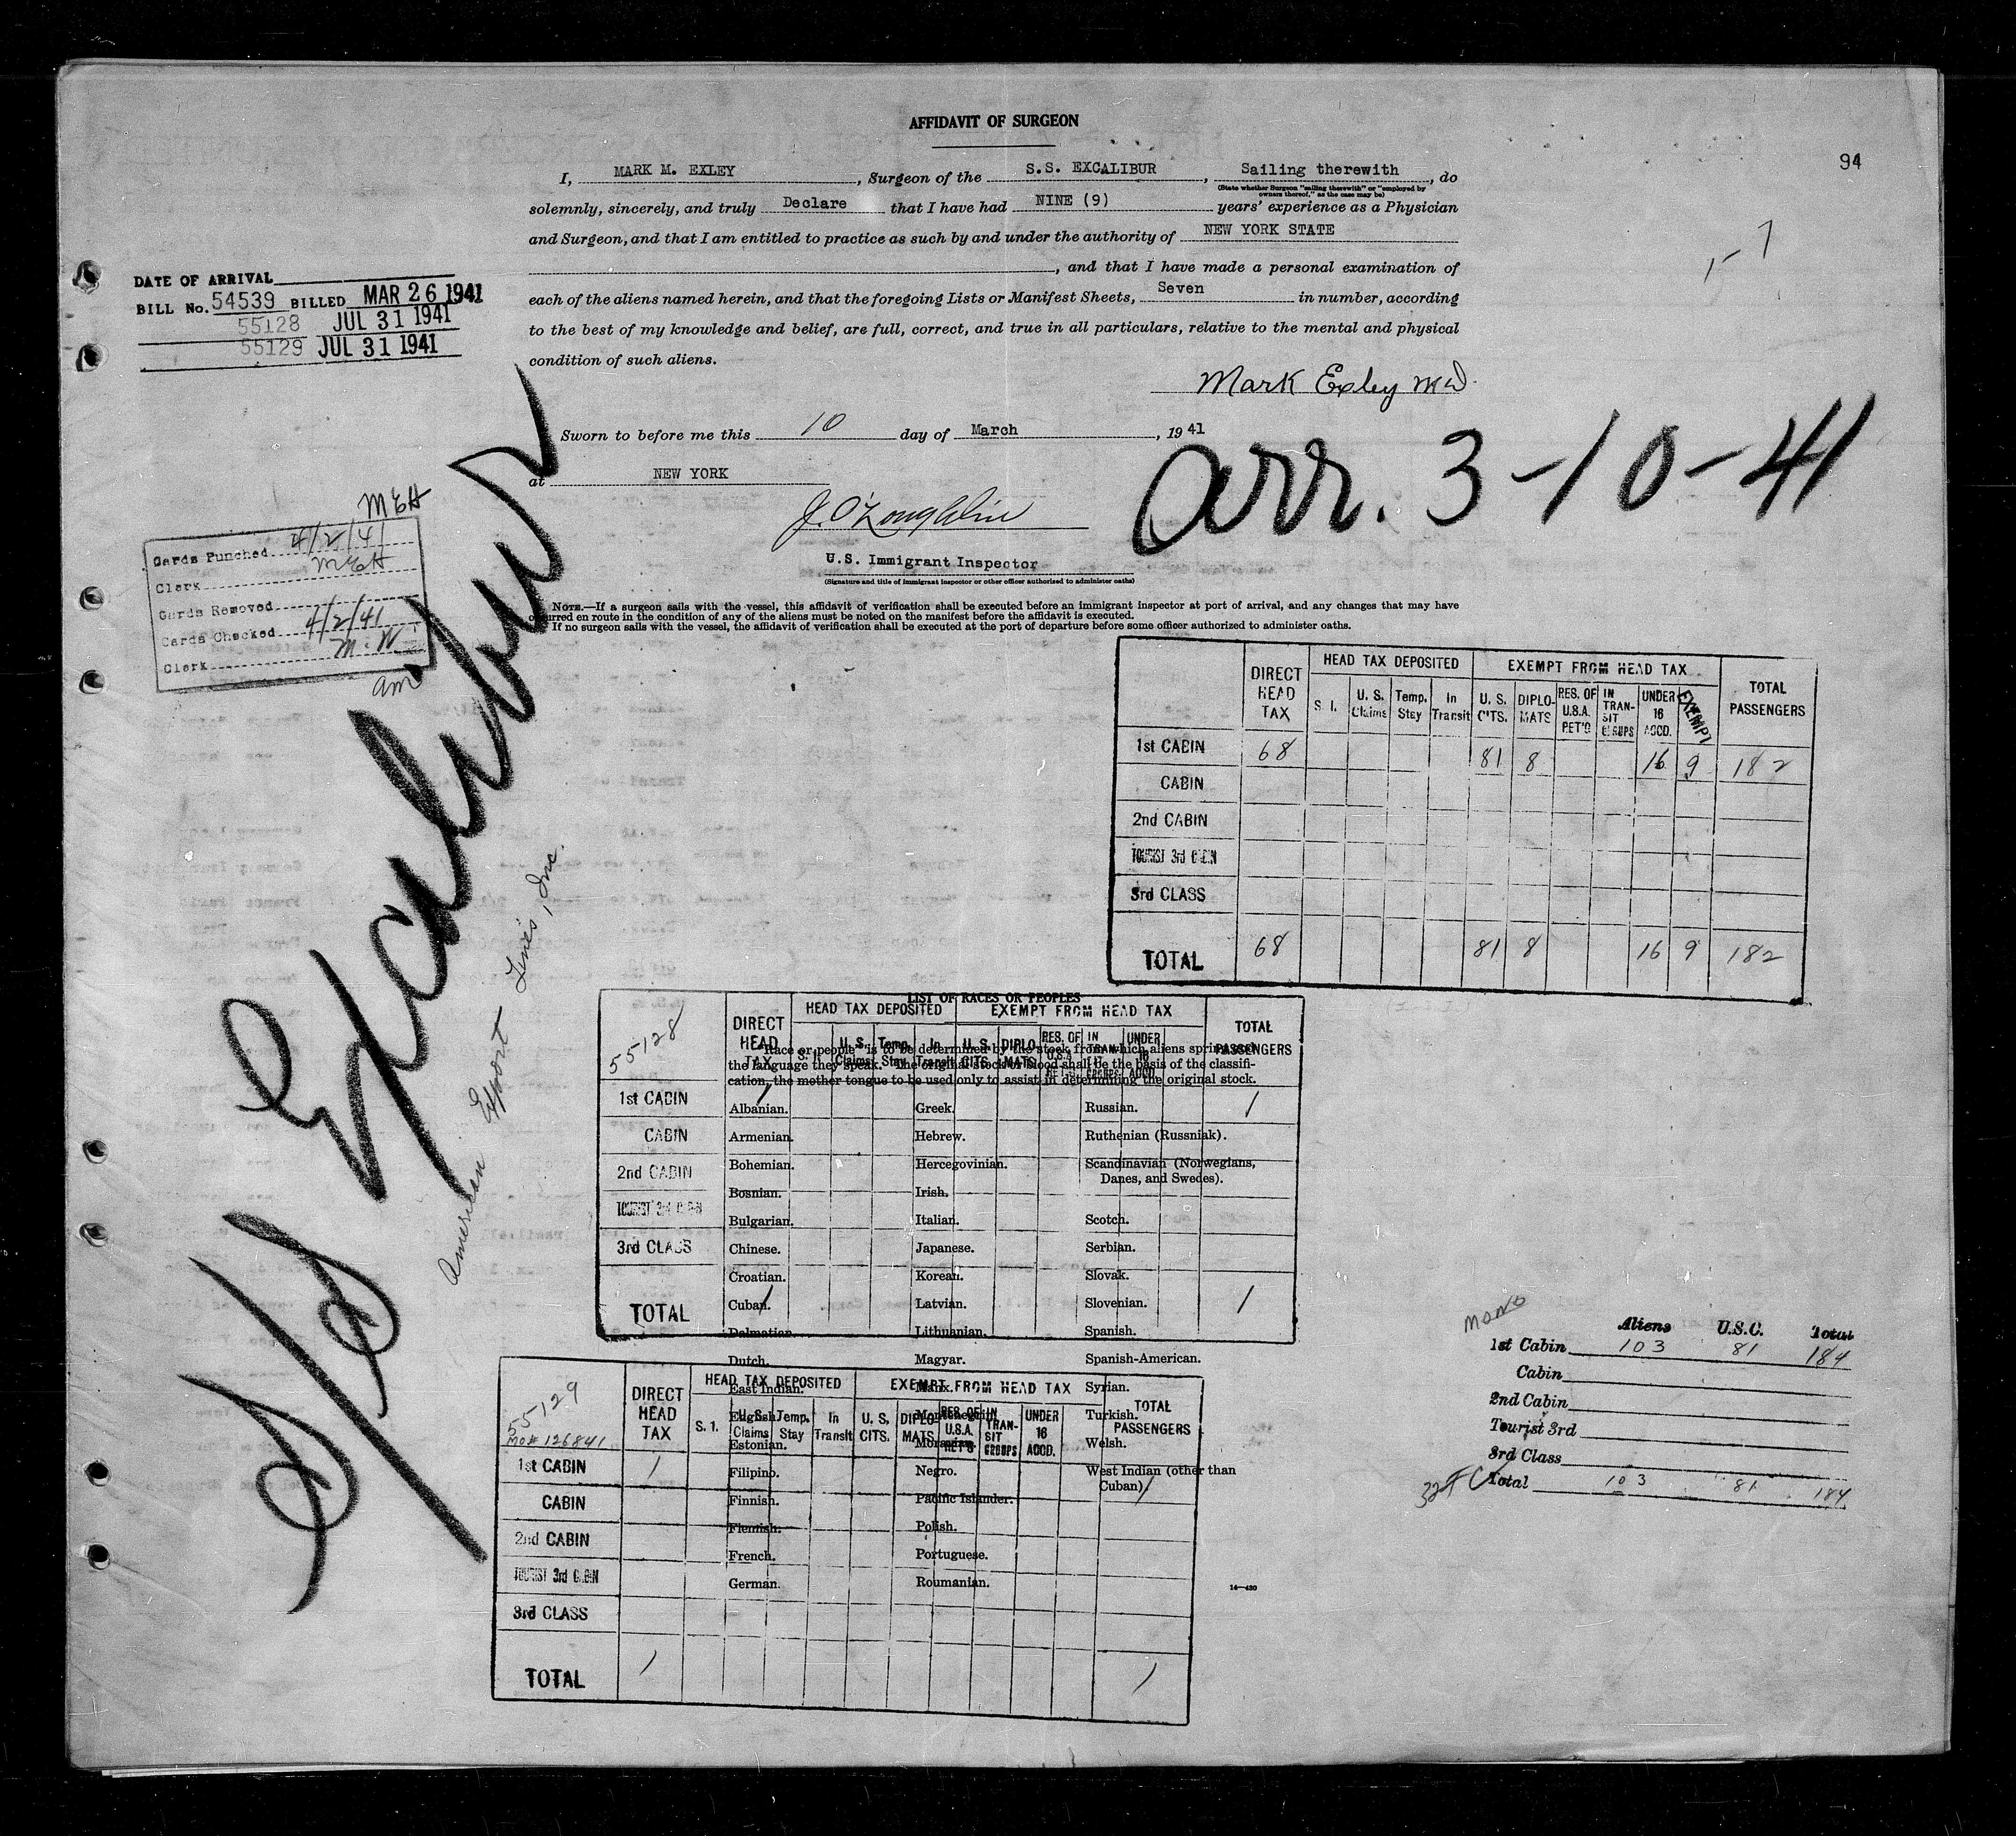 AFFIDAVIT OF SURGEON
94
I, MARK M. EXLEY, Surgeon of the S.S. EXCALIBUR, Sailing therewith, do
(State whether Surgeon "sailing therewith" or "employed by owners thereof," as the case may be)
solemnly, sincerely, and truly Declare that I have had NINE (9) years' experience as a Physician
and Surgeon, and that I am entitled to practice as such by and under the authority of NEW YORK STATE
, and that I have made a personal examination of
each of the aliens named herein, and that the foregoing Lists or Manifest Sheets, Seven in number, according
to the best of my knowledge and belief, are full, correct, and true in all particulars, relative to the mental and physical
condition of such aliens.
Mark Exley MD.
Sworn to before me this 10 day of March, 1941
at NEW YORK
J. O'Loughlin
U.S. Immigrant Inspector
(Signature and title of immigrant inspector or other officer authorized to administer oaths)
NOTE.—If a surgeon sails with the vessel, this affidavit of verification shall be executed before an immigrant inspector at port of arrival, and any changes that may have
occurred en route in the condition of any of the aliens must be noted on the manifest before the affidavit is executed.
If no surgeon sails with the vessel, the affidavit of verification shall be executed at the port of departure before some officer authorized to administer oaths.
DATE OF ARRIVAL
BILL No. 54539 BILLED MAR 26 1941
55128 JUL 31 1941
55129 JUL 31 1941
arr. 3-10-41
MEH
Cards Punched 4/2/41
Clerk MEH
Cards Removed
Cards Checked 4/2/41
Clerk M.W.
am
S/S Excalibur
American Export Lines, Inc.
DIRECT HEAD TAX
HEAD TAX DEPOSITED
EXEMPT FROM HEAD TAX
TOTAL PASSENGERS
S. I.
U. S. Claims
Temp. Stay
In Transit
U. S. CITS.
DIPLOMATS
RES. OF U.S.A. RET'G
IN TRANSIT GROUPS
UNDER 16 ACCD.
EXEMPT
1st CABIN 68 81 8 16 9 182
CABIN
2nd CABIN
TOURIST 3rd CABIN
3rd CLASS
TOTAL 68 81 8 16 9 182
LIST OF RACES OR PEOPLES
"Race or people" is to be determined by the stock from which aliens sprang and
the language they speak. The original stock or blood shall be the basis of the classifi-
cation, the mother tongue to be used only to assist in determining the original stock.
Albanian. Greek. Russian.
Armenian. Hebrew. Ruthenian (Russniak).
Bohemian. Hercegovinian. Scandinavian (Norwegians,
Danes, and Swedes).
Bosnian. Irish.
Bulgarian. Italian. Scotch.
Chinese. Japanese. Serbian.
Croatian. Korean. Slovak.
Cuban. Latvian. Slovenian.
Dalmatian. Lithuanian. Spanish.
Dutch. Magyar. Spanish-American.
East Indian. Manx. Syrian.
English. Montenegrin. Turkish.
Estonian. Moravian. Welsh.
Filipino. Negro. West Indian (other than
Cuban).
Finnish. Pacific Islander.
Flemish. Polish.
French. Portuguese.
German. Roumanian.
14—430
55128
DIRECT HEAD TAX
HEAD TAX DEPOSITED
EXEMPT FROM HEAD TAX
TOTAL PASSENGERS
S. I.
U. S. Claims
Temp. Stay
In Transit
U. S. CITS.
DIPLOMATS
RES. OF U.S.A. RET'G
IN TRANSIT GROUPS
UNDER 16 ACCD.
1st CABIN 1 1
CABIN
2nd CABIN
TOURIST 3rd CABIN
3rd CLASS
TOTAL 1 1
55129
MO# 126841
DIRECT HEAD TAX
HEAD TAX DEPOSITED
EXEMPT FROM HEAD TAX
TOTAL PASSENGERS
S. I.
U. S. Claims
Temp. Stay
In Transit
U. S. CITS.
DIPLOMATS
RES. OF U.S.A. RET'G
IN TRANSIT GROUPS
UNDER 16 ACCD.
1st CABIN 1 1
CABIN
2nd CABIN
TOURIST 3rd CABIN
3rd CLASS
TOTAL 1 1
Aliens U.S.C. Total
1st Cabin 103 81 184
Cabin
2nd Cabin
Tourist 3rd
3rd Class
Total 103 81 184